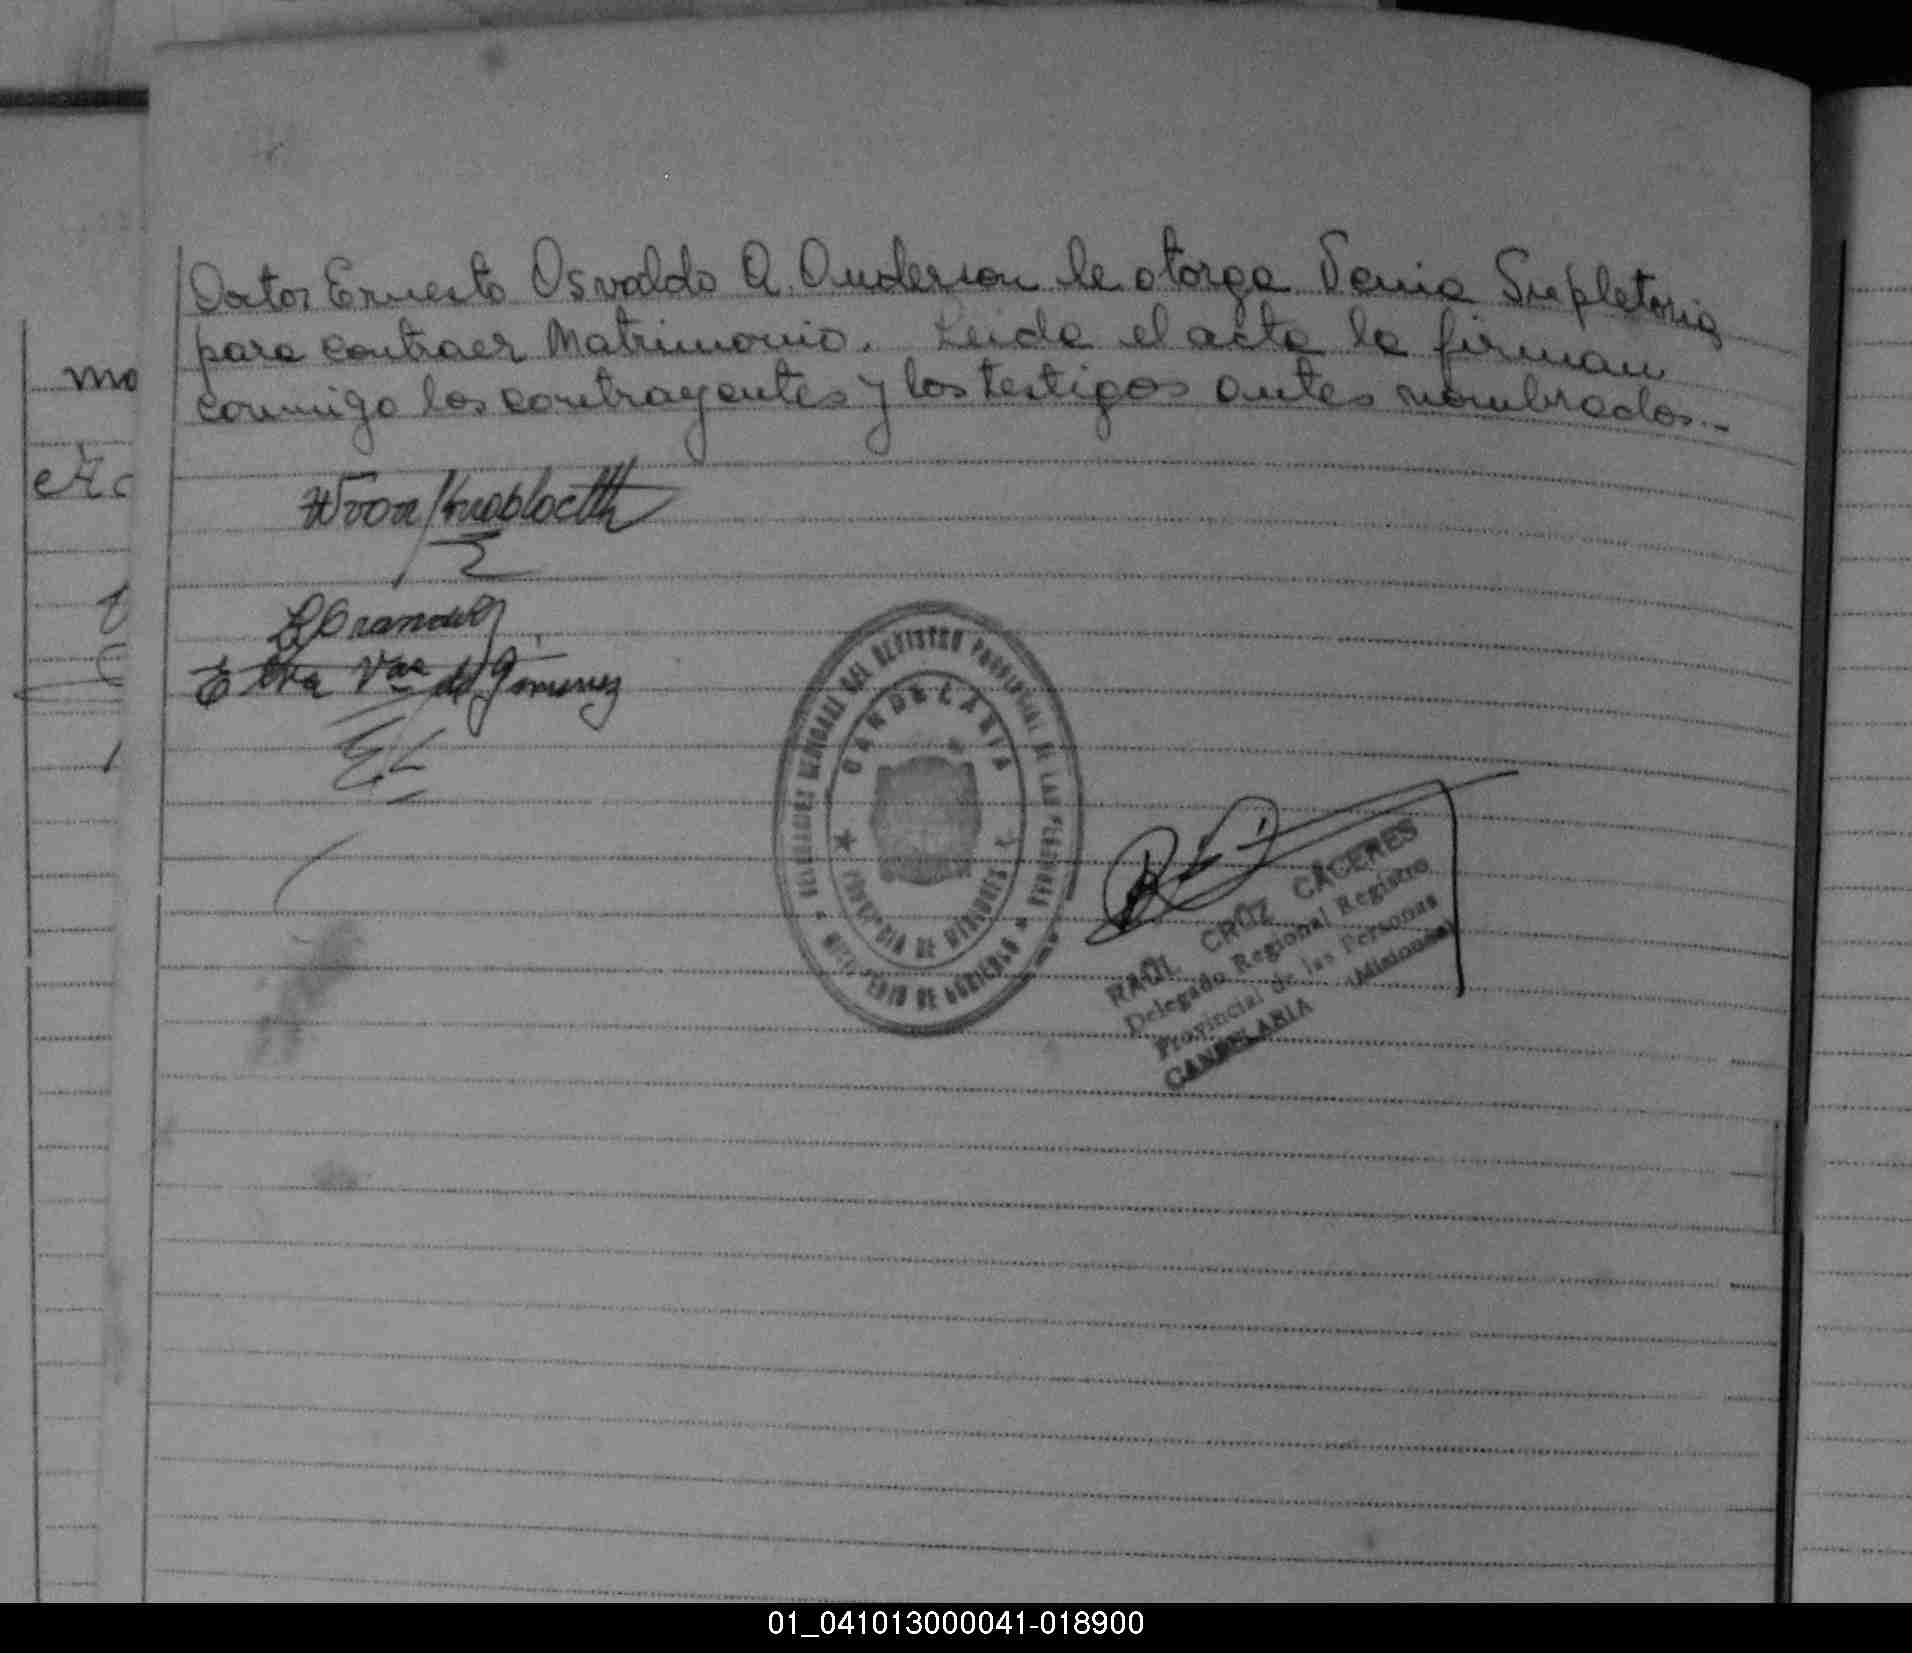 Doctor Ernesto Osvaldo A. Anderson le otorga Venia Supletoria
para contraer Matrimonio. Leida el acta la firman
conmigo los contrayentes y los testigos antes nombrados.-
Knobloch
Elva Vda de Gimenez
DELEGACIONES REGIONALES DEL REGISTRO PROVINCIAL DE LAS PERSONAS
CANDELARIA
PROVINCIA DE MISIONES
MINISTERIO DE GOBIERNO
RAÚL CRUZ CÁCERES
Delegado Regional Registro
Provincial de las Personas
CANDELARIA (Misiones)
mo
01_041013000041-018900